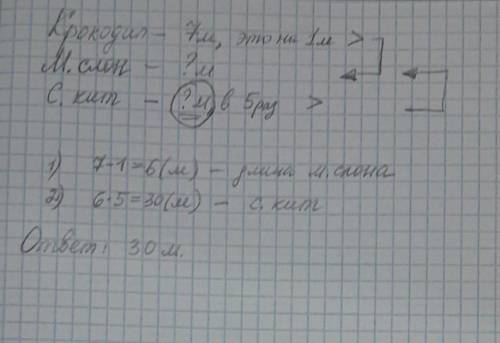 Крокодил — 7м, это на 1м >
М. слон — ?м
С. кит — ?м, в 5раз >
1) 7-1=6(м) — длина м. слона
2) 6·5=30(м) — с. кит
Ответ: 30 м.